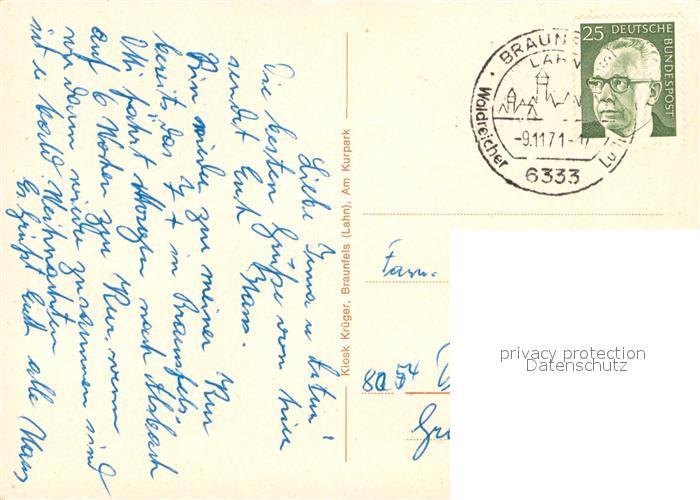 Liebe Irma u
Die besten Grüße von hier
sendet Euch Hans.
Bin wieder zur meiner Kur
bereits das 7 x in Braunfels
Otti fährt Morgen nach Alsbach
auf 6 Wochen zur Kur, wenn
wir dann wieder zusammen sind
ist es bald Weihnachten
Es grüßt Euch alle Hans
Kiosk Krüger, Braunfels (Lahn), Am Kurpark
BRAUNF
LAHN
Waldreicher
Lu
-9.11.71-17
6333
25 DEUTSCHE
BUNDESPOST
Fam.
8054
privacy protection
Datenschutz